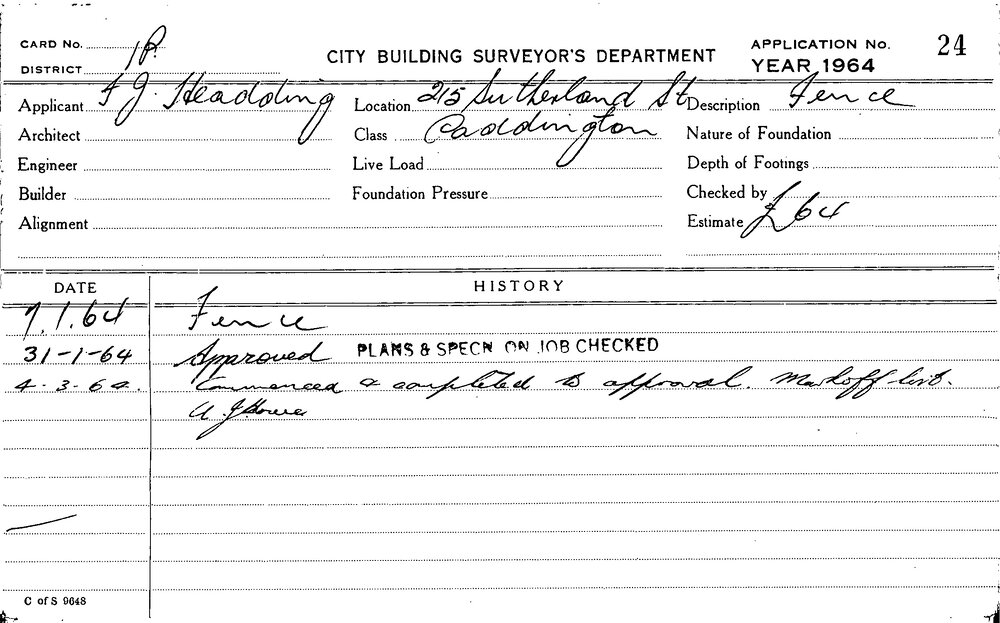 CARD No.
DISTRICT 1P.
CITY BUILDING SURVEYOR'S DEPARTMENT
APPLICATION No. 24
YEAR 1964
Applicant F J. Headding
Location 215 Sutherland St
Description Fence
Architect
Class Paddington
Nature of Foundation
Engineer
Live Load
Depth of Footings
Builder
Foundation Pressure
Checked by
Alignment
Estimate £64
DATE
HISTORY
7.1.64 Fence
31-1-64 Approved PLANS & SPECN ON JOB CHECKED
4-3-64. Commenced & completed to approval. Mark off list.
C of S 9648